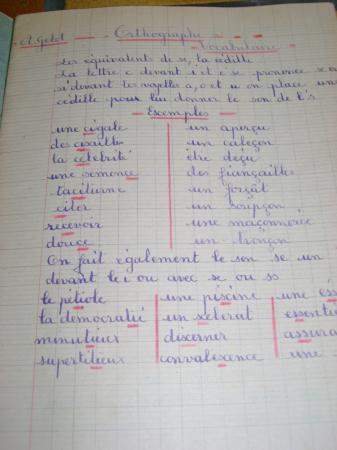 A. Getet - Orthographe -
- Vocabulaire -
Les équivalents de se, la cédille
La lettre c devant i et e se prononce se
si devant les voyelles a, o et u on place une
cédille pour lui donner le son de l's
- Exemples -
une cigale un aperçu
des cisailles un caleçon
la célébrité être déçu
une semence des fiançailles
taciturne un forçat
citer un soupçon
recevoir une maçonnerie
douce un tronçon
On fait également le son se un
devant le i ou avec sc ou ss
le pétiole une piscine une
la démocratie un scélérat
minutieux discerner
superstitieux convalescence une